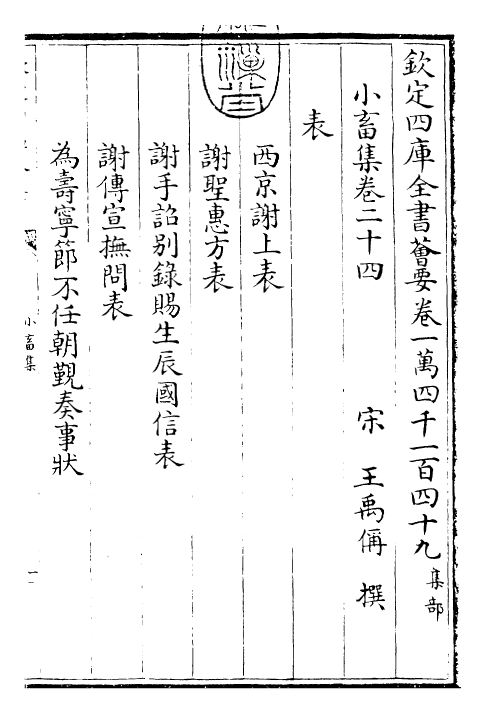 欽定四庫全書薈要卷一萬四千一百四十九 集部
小畜集卷二十四 宋 王禹偁 撰
表
西京謝上表
謝聖惠方表
謝手詔別錄賜生辰國信表
謝傳宣撫問表
為壽寧節不任朝覲奏事狀
小畜集
一